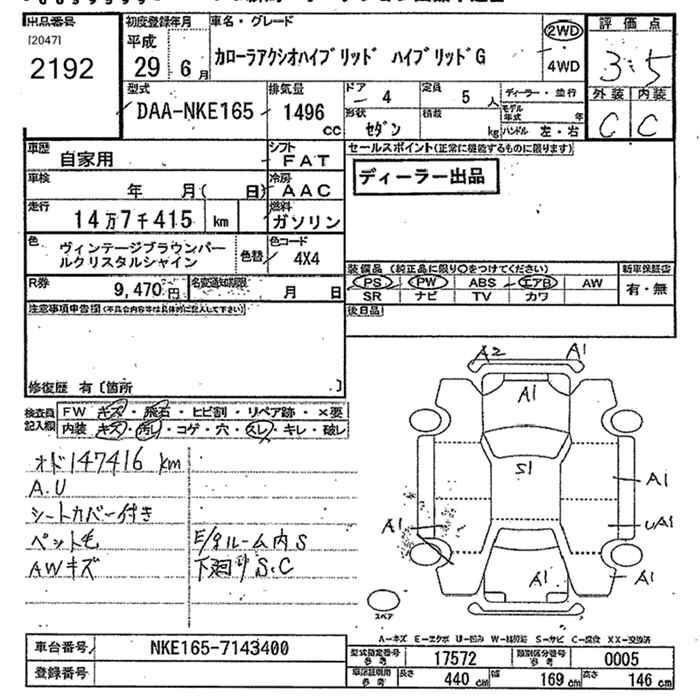 出品番号
[2047]
2192
初度登録年月
平成
29 6月
車名・グレード
カローラアクシオハイブリッド ハイブリッドG
2WD
4WD
評価点
3.5
外装 内装
C C
型式
DAA-NKE165
排気量
1496
cc
ドア 4
定員 5人
形状 セダン
積載 kg
ディーラー・並行
モデル年式 年
ハンドル 左・右
車歴 自家用
シフト FAT
車検 年 月( 日)
冷房 AAC
走行 14万7千415 km
燃料 ガソリン
色 ヴィンテージブラウンパールクリスタルシャイン
色替
色コード 4X4
R券 9,470円
名変通知期限 月 日
セールスポイント(正常に機能するものに限ります)
ディーラー出品
装備品 (純正品に限り○をつけてください)
新車保証書
PS PW ABS エアB AW
SR ナビ TV カワ
有・無
後日品
注意事項申告欄(不具合内容等は具体的に記入して下さい)
修復歴 有〔箇所 〕
検査員記入欄
FW キズ・飛石・ヒビ割・リペア跡・×要
内装 キズ・汚レ・コゲ・穴・スレ・キレ・破レ
オド147416 km
A.U
シートカバー付き
ペット毛
AWキズ
E/gルーム内S
下廻りS.C
A2 A1
A1
S1
A1
A1
UA1
A1
A1
スペア
A-キズ E-エクボ U-凹み W-補修跡 S-サビ C-腐食 XX-交換済
車台番号 NKE165-7143400
登録番号
型式指定番号 参考 17572
類別区分番号 参考 0005
車庫証明用 参考
長さ 440 cm
幅 169 cm
高さ 146 cm